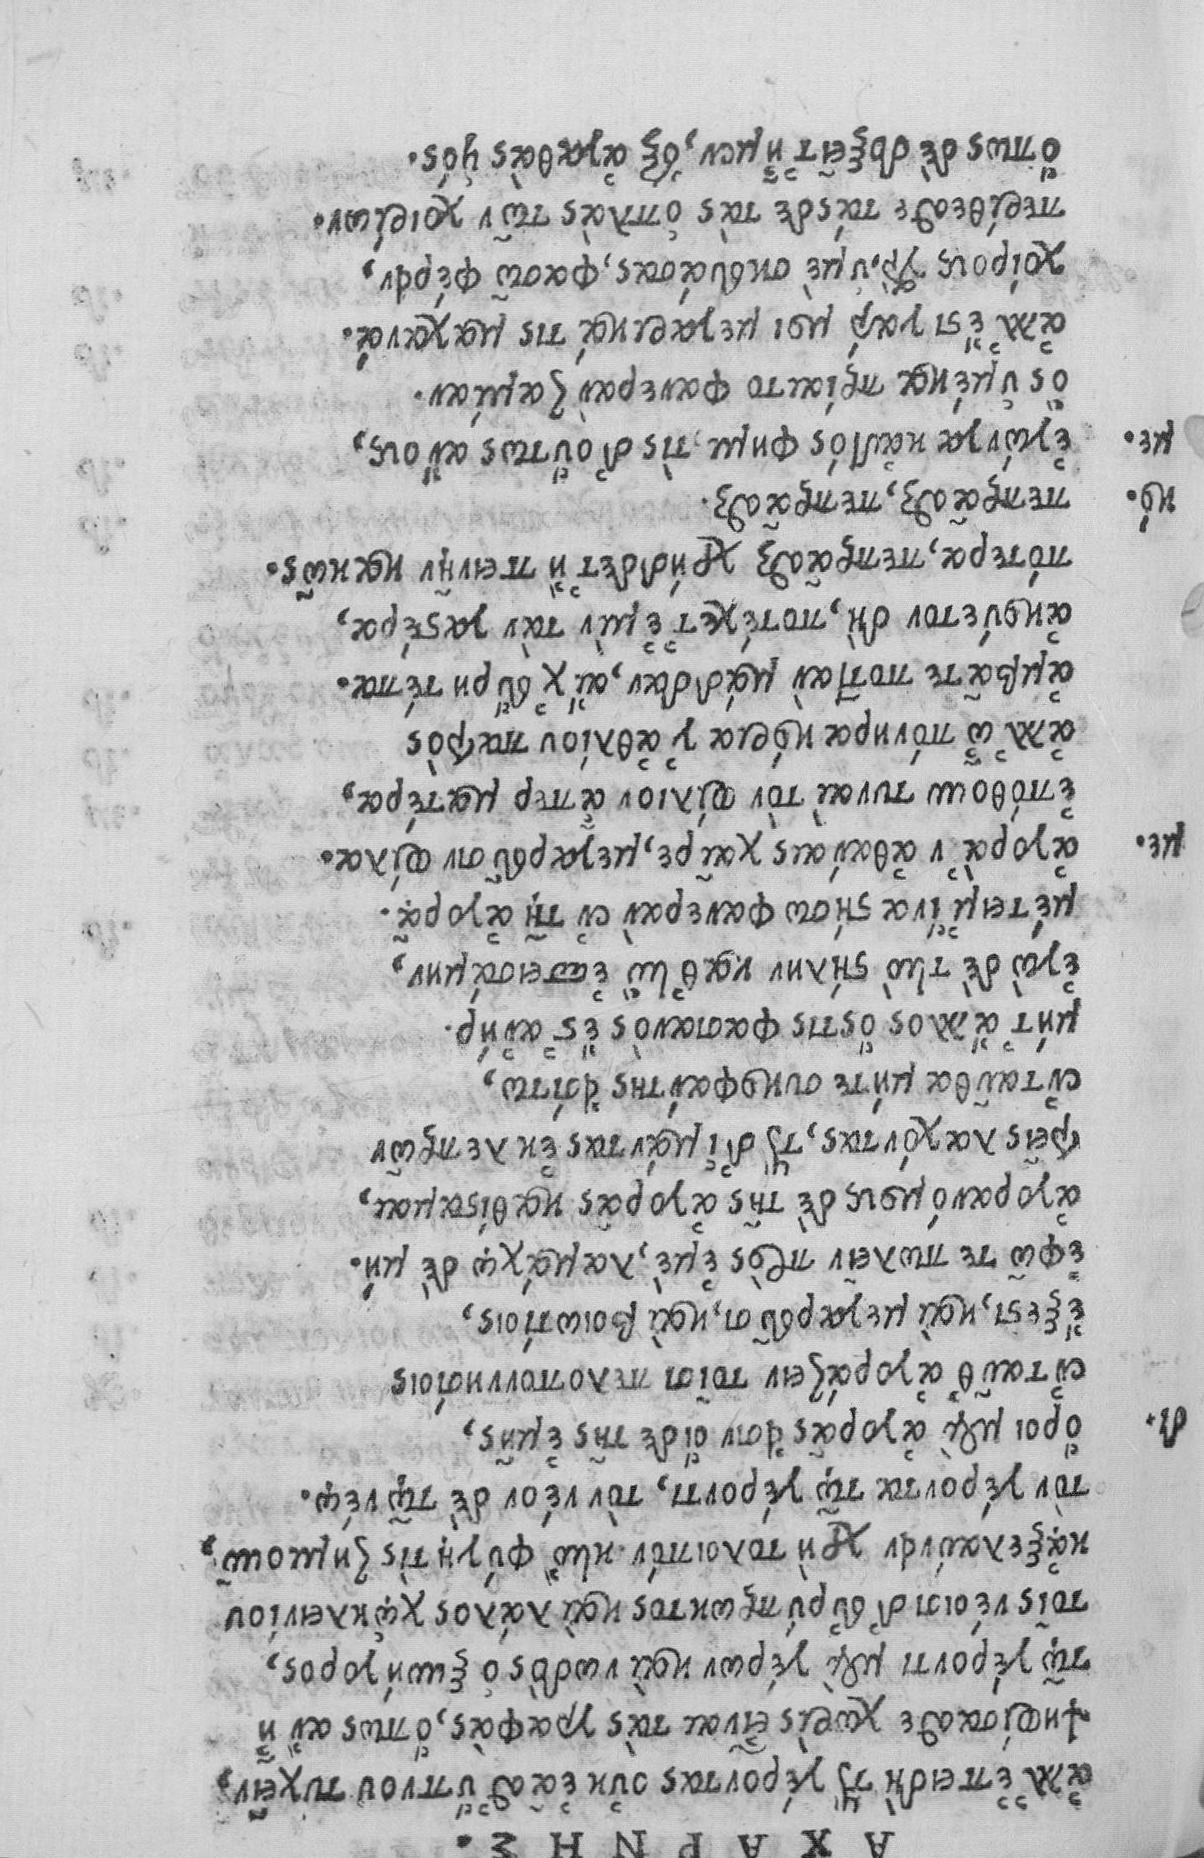 ΑΧΑΡΝΗΣ.
ἀλλ' ἐπειδὴ τοὺς γέροντας οὐκ ἐᾶσθ' ὕπνου τυχεῖν,
ψηφίσασθε χωρὶς εἶναι τὰς γραφὰς, ὅπως ἂν ᾖ
τῷ γέροντι μὲν γέρων καὶ νωδὸς ὁ ξυνήγορος,
τοῖς νέοισι δ' εὐρύπρωκτος καὶ λάλος χὠ κλεινίου
κἀξελαύνειν χρὴ τολοιπὸν. κἂν φύγῃ τις ζημιοῦν,
τὸν γέροντα τῷ γέροντι, τὸν νέον δὲ τῷ νέῳ.
δι. ὅροι μὲν ἀγορᾶς εἰσιν οἵδε τῆς ἐμῆς,
ἐνταῦθ' ἀγοράζειν τοῖσι πελοποννησίοις
ἔξεστι, καὶ μεγαρεῦσι, καὶ βοιωτίοις,
ἐφ' ᾧ τε πωλεῖν πρὸς ἐμὲ, λαμάχῳ δὲ μή.
ἀγορανόμους δὲ τῆς ἀγορᾶς καθίσταμαι,
τρεῖς λαχόντας, τοὺς δ' ἱμάντας ἐκ λεπρῶν
ἐνταῦθα μήτε συκοφάντης εἰσίτω,
μήτ' ἄλλος ὅστις φασιανὸς ἔστ' ἀνήρ.
ἐγὼ δὲ τὴν στήλην καθ' ἣν ἐσπεισάμην,
μέτειμ' ἵνα στήσω φανερὰν ἐν τῇ ἀγορᾷ.
με. ἀγορὰ 'ν ἀθάναις χαῖρε, μεγαρεῦσιν φίλα.
ἐπόθουν τυναὶ τὸν φίλιον ᾇπερ ματέρα,
ἀλλ' ὦ πόνηρα κόρια γ' ἀθλίου πατρὸς
ἄμβατε ποττὰν μάδδαν, αἴ χ' εὕρητέ πα.
ἀκούετον δὴ, ποτέχετ' ἐμὶν τὰν γαστέρα,
πότερα, πεπρᾶσθαι χρήδδετ' ἢ πεινῆν κακῶς.
κό. πεπρᾶσθαι, πεπρᾶσθαι.
με. ἐγώνγα καὐτός φημι. τὶς δ' οὕτως ἄνους,
ὃς ὑμέ κα πρίαιτο φανερὰν ζαμίαν.
ἀλλ' ἔστι γάρ μοι μεγαρικά τις μαχανά.
χοίρους γὰρ ὑμὲ σκευάσας, φασῶ φέρειν,
περίθεσθε τάσδε τὰς ὁπλὰς τῶν χοιρίων.
ὅπως δὲ δοξεῖτ' ἦμεν, ἐξ ἀγαθᾶς ὑός.